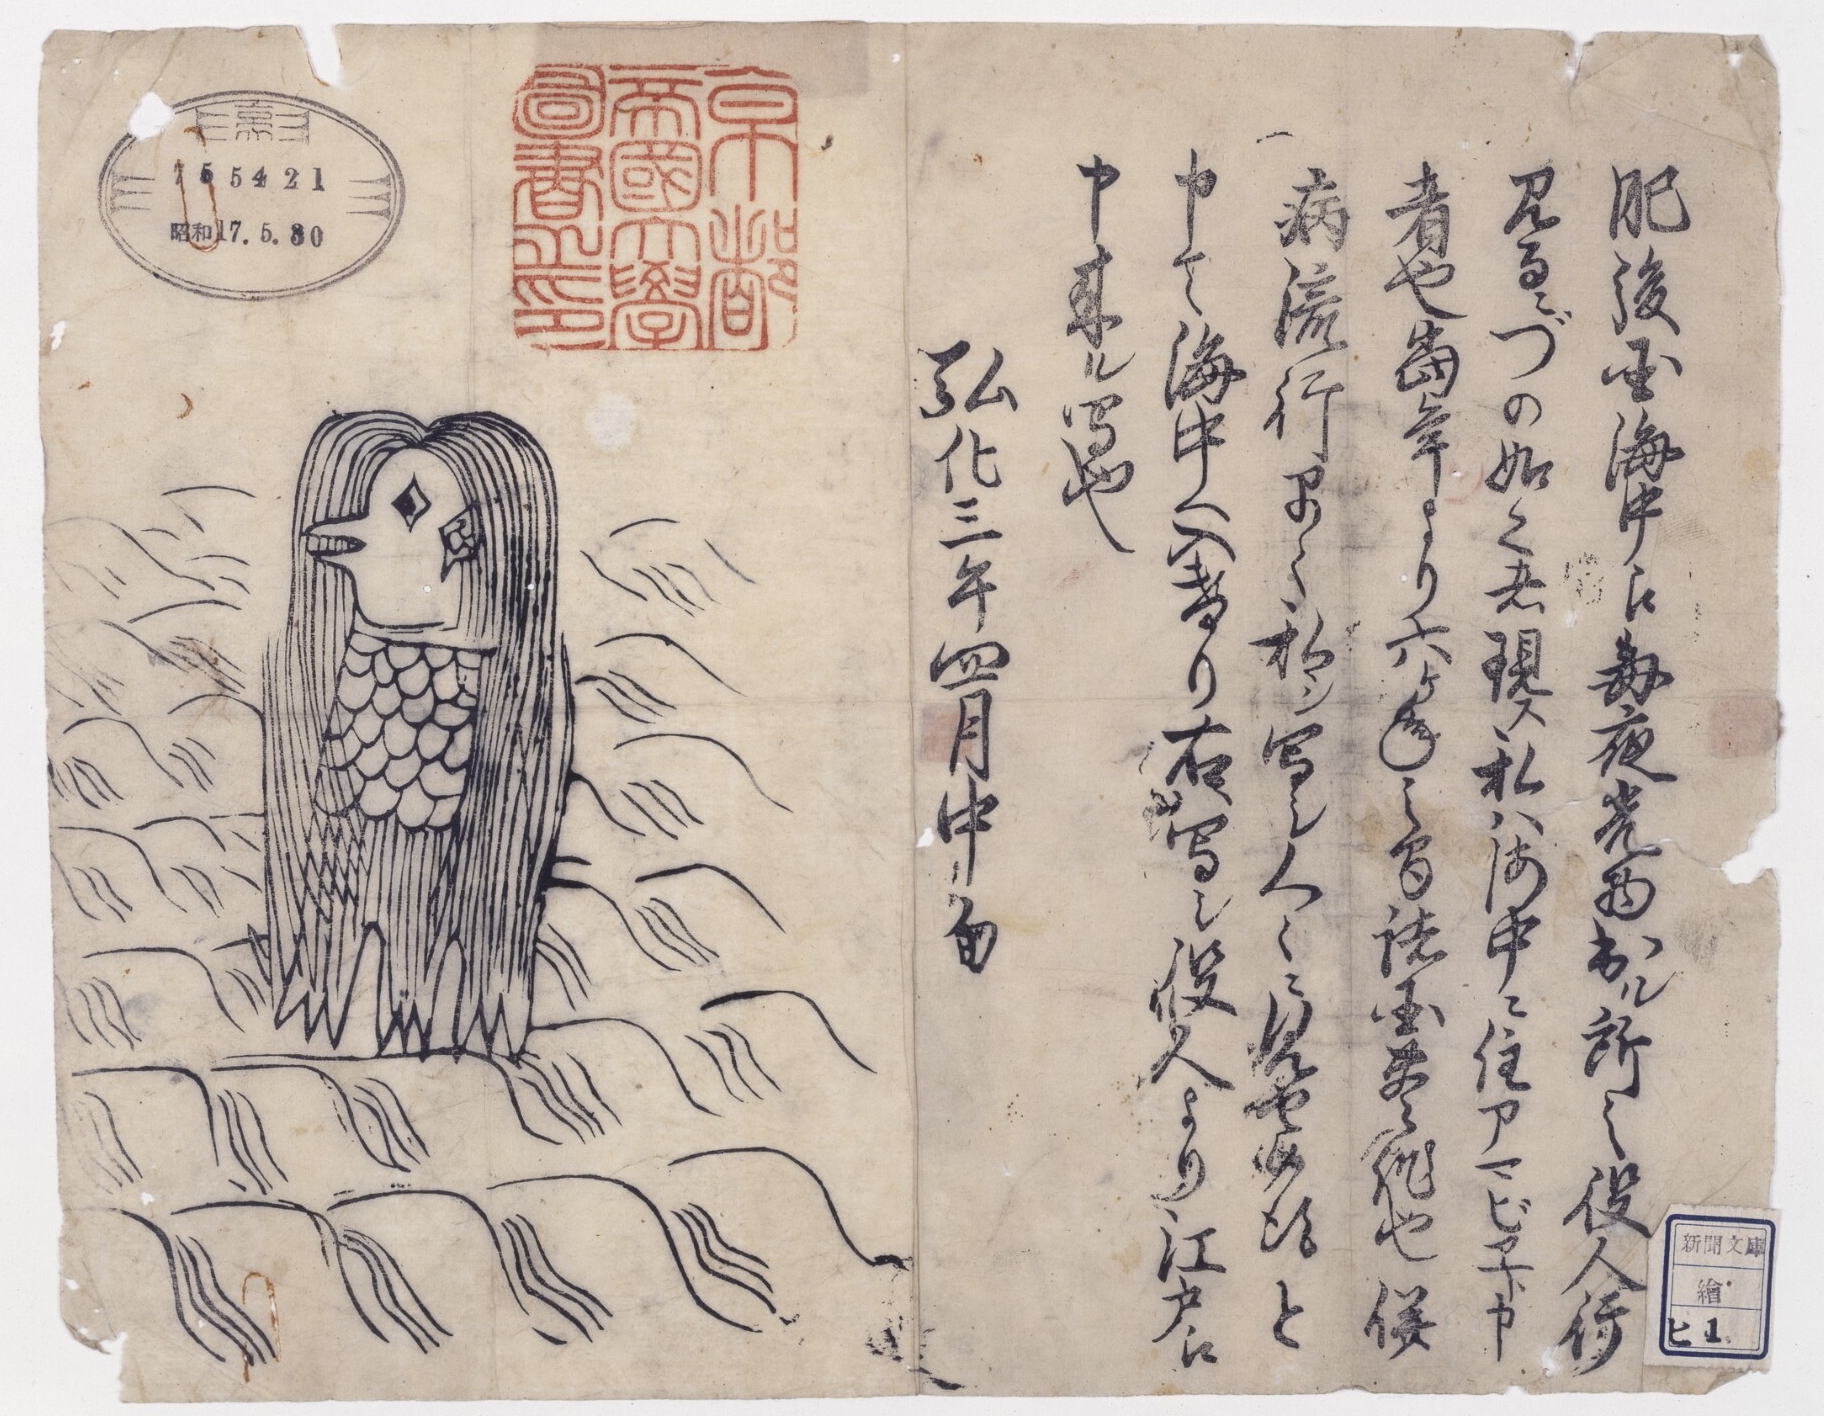 肥後国海中江毎夜光物出ル所之役人行
見るニづの如く者現ス私ハ海中ニ住アマビヱト申
者也當年より六ヶ年之間諸国豊作也併
病流行早々私シ写シ人々ニ見せ候得と
申て海中へ入けり右写シ役人より江戸江
申来ル写也
弘化三年四月中旬
京都
帝國大學
圖書之印
京大
755421
昭和17.5.30
新聞文庫
繪
ヒ1